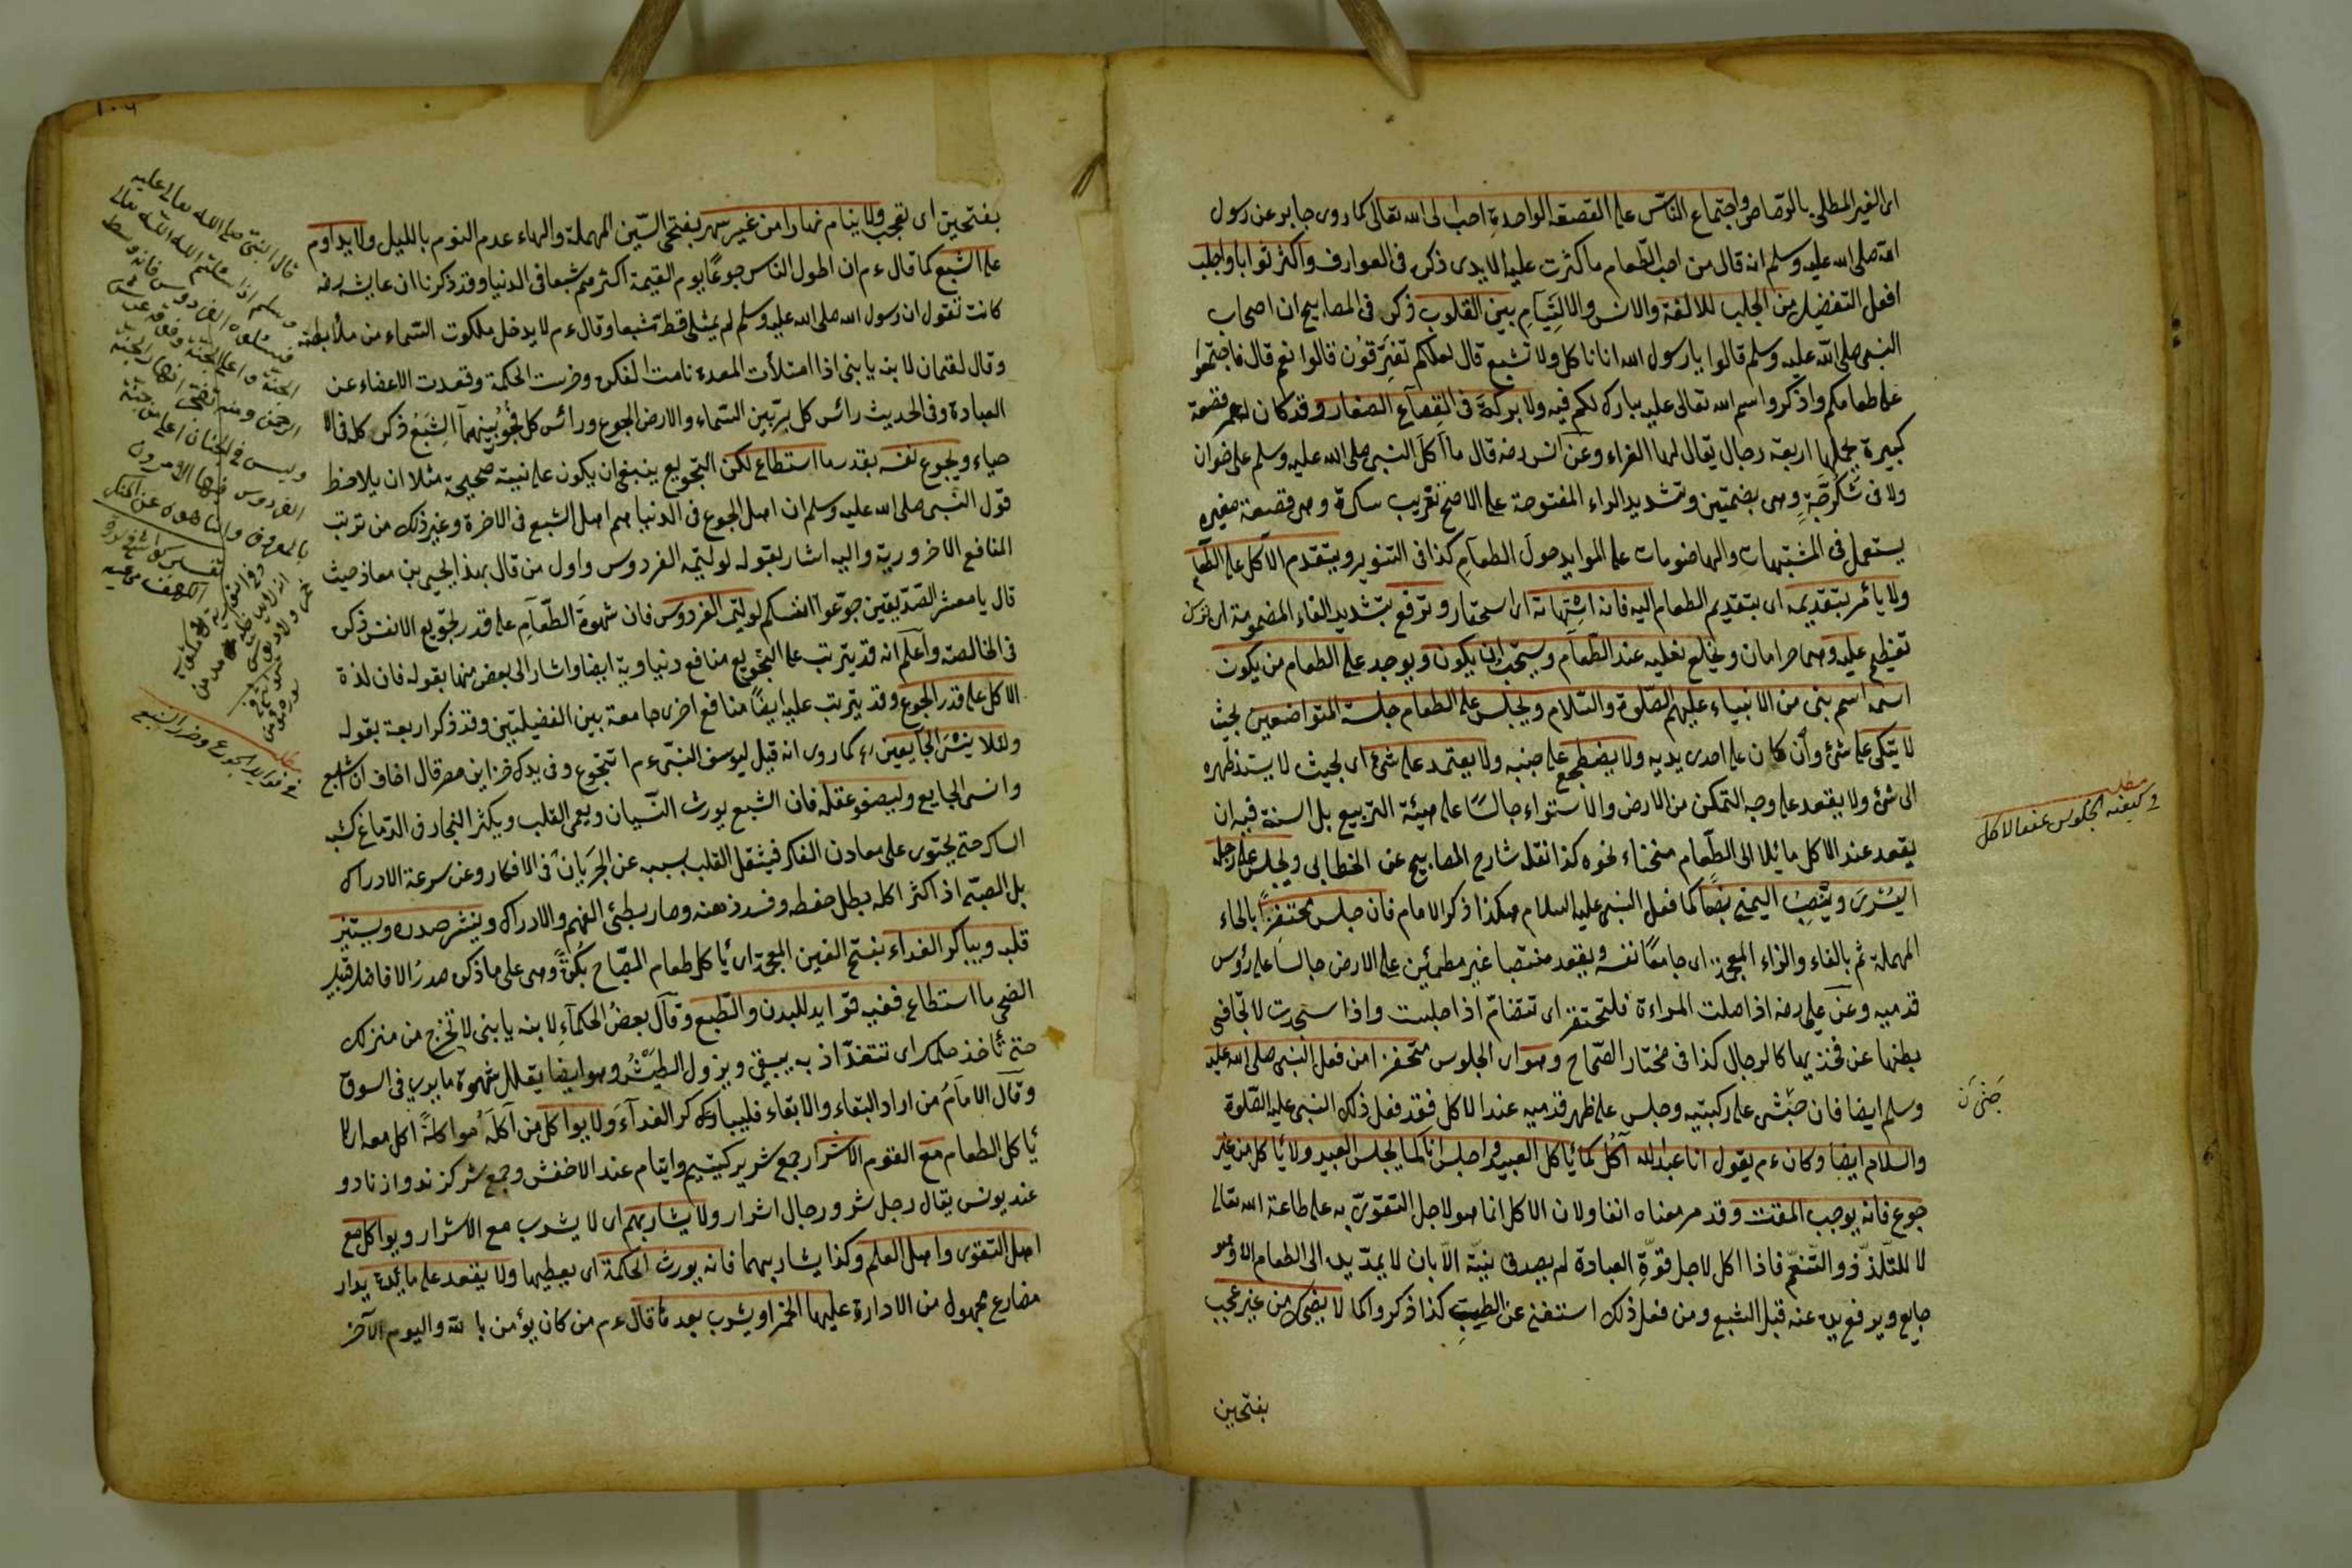 اى الغير المطلى بالرصاص واجتماع الناس على القصعة الواحدة احب الى الله تعالى كما روى جابر عن رسول
الله صلى الله عليه وسلم انه قال من احب الطعام ما كثرت عليه الايدى ذكره فى العوارف واكثر ثوابا واجلب
افعل التفضيل من الجلب للالفة والانس والالتيام بين القلوب ذكره فى المصابيح ان اصحاب
النبى صلى الله عليه وسلم قالوا يا رسول الله انا نأكل ولا نشبع قال لعلكم تفترقون قالوا نعم قال فاجتمعوا
على طعامكم واذكروا اسم الله تعالى عليه يبارك لكم فيه ولا بركة فى القصاع الصغار وقد كان لهم قصعة
كبيرة يحملها اربعة رجال يقال لها الغراء وعن انس رضه قال ما اكل النبى صلى الله عليه وسلم على خوان
ولا فى سكرجة وهى بضمتين وتشديد الراء المفتوحة على الاصح تعريب سكرة وهى قصيعة صغيرة
يستعمل فى المشتهيات والهاضومات على الموايد حول الطعام كذا فى التنوير ويتقدم الاكل على الطعام
ولا يأمر بتقديمه اى بتقديم الطعام اليه فانه استهانة اى استحقار وترفع بتشديد الفاء المضمومة اى
تعظيم عليه وهما حرامان ويخلع نعليه عند الطعام ويستحب ان يكون ويوجد على الطعام من يكون
اسمه اسم نبى من الانبياء عليهم الصلوة والسلام ويجلس على الطعام جلسة المتواضعين بحيث
لا يتكى على شئ وان كان على احدى يديه ولا يضطجع على جنبه ولا يعتمد على شئ اى بحيث لا يستند ظهره
الى شئ ولا يقعد على وجه التمكن من الارض والاستواء جالسا على هيئة التربيع بل السنة فيه ان
يقعد عند الاكل مائلا الى الطعام منحناء نحوه كذا نقله شارح المصابيح عن الخطابى ويجلس على رجله
اليسرى وينصب اليمنى نصبا كما فعل النبى عليه السلام هكذا ذكر الامام فان جلس محتفزا بالحاء
المهملة ثم بالفاء والزاء المعجمة اى جامعا نفسه ويقعد منتصبا غير مطمئن على الارض جالسا على رؤس
قدميه وعن على رضه اذا صلت المراءة فلتحتفز اى تتضام اذا جلست واذا سجدت لا تجافى
بطنها عن فخذيها كالرجال كذا فى مختار الصحاح وهو اى الجلوس متحفزا من فعل النبى صلى الله عليه
وسلم ايضا فان جثى على ركبتيه وجلس على ظهر قدميه عند الاكل فقد فعل ذلك النبى عليه الصلوة
والسلام ايضا وكان ءم يقول انا عبد الله آكل كما يأكل العبيد واجلس انا كما يجلس العبيد ولا يأكل من غير
جوع فانه يوجب المقت وقد مر معناه انفا ولان الاكل انما هو لاجل التقوى به على طاعة الله تعالى
لا للتلذذ والتنعم فاذا اكل لاجل قوة العبادة لم يصدق نيته الا بان لا يمد يده الى الطعام الا وهو
جايع ويرفع يده عنه قبل الشبع ومن فعل ذلك استغنى عن الطبيب كذا ذكروا كما لا يضحك من غير عجب
بفتحين
مطلب
وكيفية الجلوس عند الاكل
١٠٦
بفتحتين اى تعجب ولا ينام نهارا من غير سهر بفتحى السين المهملة والهاء عدم النوم بالليل ولا يداوم
على الشبع كما قال ءم ان اطول الناس جوعا يوم القيمة اكثرهم شبعا فى الدنيا وقد ذكرنا ان عايشه رضه
كانت تقول ان رسول الله صلى الله عليه وسلم لم يمتلى قط شبعا وقال ءم لا يدخل ملكوت السماء من ملأ بطنه
وقال لقمان لابنه يا بنى اذا امتلأت المعدة نامت الفكرة وخرست الحكمة وقعدت الاعضاء عن
العبادة وفى الحديث رائس كل بر بين السماء والارض الجوع ورائس كل فجور بينهما الشبع ذكره كله فى الا
حياء ويجوع نفسه بقدر ما استطاع لكن التجويع ينبغى ان يكون على نية صحيحة مثلا ان يلاحظ
قول النبى صلى الله عليه وسلم ان اهل الجوع فى الدنيا هم اهل الشبع فى الاخرة وغير ذلك من ترتب
المنافع الاخروية واليه اشار بقوله لوليمة الفردوس واول من قال بهذا يحيى بن معاذ حيث
قال يا معشر الصديقين جوعوا انفسكم لوليمة الفردوس فان شهوة الطعام على قدر تجويع الانفس ذكره
فى الخالصة واعلم انه قد يترتب على التجويع منافع دنياوية ايضا واشار الى بعض منها بقوله فان لذة
الاكل على قدر الجوع وقد يترتب عليه ايضا منافع اخرى جامعة بين الفضيلتين وقد ذكر اربعة بقوله
ولئلا ينسى الجايعين كما روى انه قيل ليوسف النبى ءم اتتجوع وفى يدك خزاين مصر قال اخاف ان اشبع
وانسى الجايع وليصفو عقله فان الشبع يورث النسيان ويعمى القلب ويكثر البخار فى الدماغ كشبه
السكر حتى يحتوى على معادن الفكر فيثقل القلب بسببه عن الجريان فى الافكار وعن سرعة الادراك
بل الصبى اذ اكثر اكله بطل حفظه وفسد ذهنه وصار بطئ الفهم والادراك وينشرح صدره ويستنير
قلبه ويباكر الغداء بفتح الغين المعجمة اى يأكل طعام الصباح بكرة وهى على ما ذكره صدر الافاضل قبيل
الضحى ما استطاع ففيه فوايد للبدن والطبع وقال بعض الحكماء لابنه يا بنى لا تخرج من منزلك
حتى تأخذ حلمك اى تتغدا اذ به يبقى ويزول الطيش وهو ايضا يقلل شهوة ما يرى فى السوق
وقال الامام من اراد البقاء والابقاء فليباكر الغداء ولا يواكل من آكله مواكلة اكل معه اى لا
يأكل الطعام مع القوم الاشرار جمع شرير كيتيم وايتام عند الاخفش وجمع شر كزند وازناد و
عند يونس يقال رجل شر ورجال اشرار ولا يشاربهم اى لا يشرب مع الاشرار ويواكل مع
اهل التقوى واهل العلم وكذا يشاربهما فانه يورث الحكمة اى يعطيها ولا يقعد على مائدة يدار
مضارع مجهول من الادارة عليها الخمر او يشرب بعد ما قال ءم من كان يؤمن بالله واليوم الآخر
قال النبى صلى الله تعالى عليه
وسلم اذا سئلتم الله تعالى
فسئلوه الفردوس فانه وسط
الجنة واعلى الجنة وفوقه عرش
الرحمن ومنه تفجر انهار الجنة
وليس فى الجنان اعلى من جنة
الفردوس فيها الآمرون
بالمعروف والناهون عن المنكر